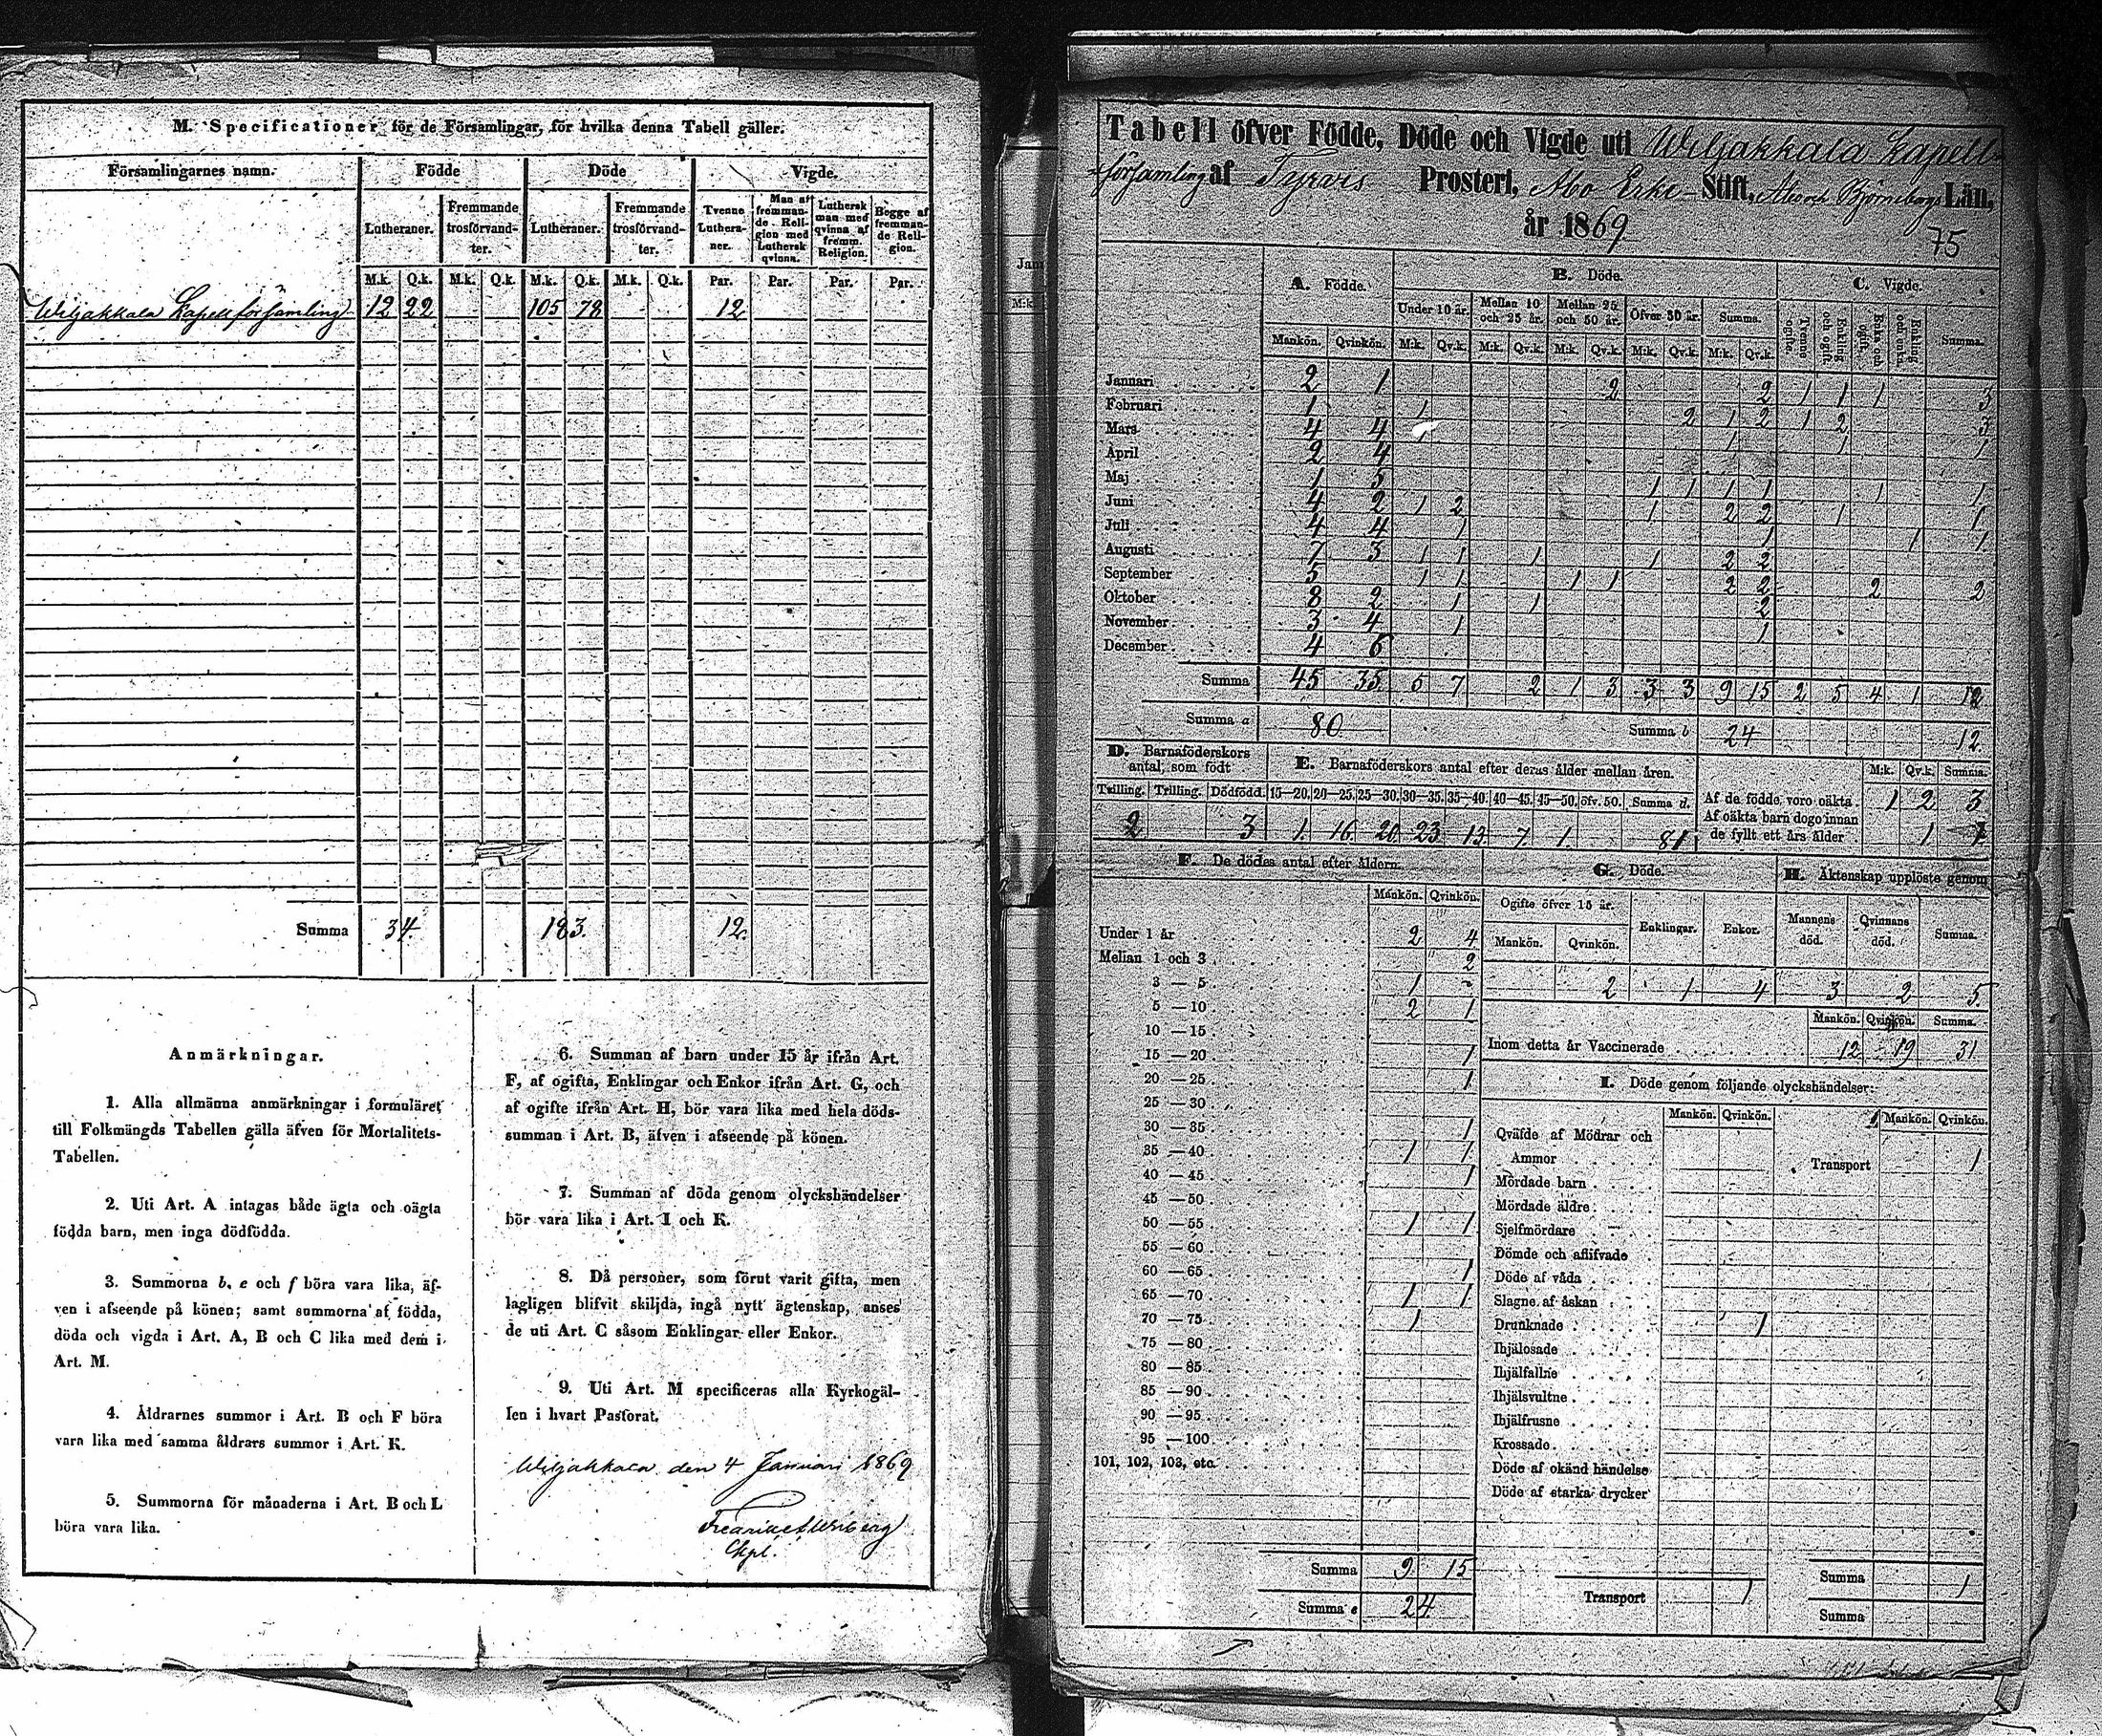 M. Specificationer för de Församlingar, för hvilka denna Tabell gäller.
Församlingarnes namn. Födde Döde Vigde.
Lutheraner. Fremmande trosförvandter. Lutheraner. Fremmande trosförvandter. Tvenne Lutheraner. Man af fremmande Religion med Luthersk qvinna. Luthersk man med qvinna af fremm. Religion. Begge af fremmande Religion.
M.k. Q.k. M.k. Q.k. M.k. Q.k. M.k. Q.k. Par. Par. Par. Par.
Wiljakkala Kapellförsamling 12 22 105 78 12
Summa 34. 183. 12.
Anmärkningar.
1. Alla allmänna anmärkningar i formuläret
till Folkmängds Tabellen gälla äfven för Mortalitets-
Tabellen.
2. Uti Art. A intagas både ägta och oägta
födda barn, men inga dödfödda.
3. Summorna b, e och f böra vara lika, äf-
ven i afseende på könen; samt summorna af födda,
döda och vigda i Art. A, B och C lika med dem i
Art. M.
4. Åldrarnes summor i Art. B och F böra
vara lika med samma åldrars summor i Art. K.
5. Summorna för månaderna i Art. B och L
böra vara lika.
6. Summan af barn under 15 år ifrån Art.
F, af ogifta, Enklingar och Enkor ifrån Art. G, och
af ogifte ifrån Art. H, bör vara lika med hela döds-
summan i Art. B, äfven i afseende på könen.
7. Summan af döda genom olyckshändelser
bör vara lika i Art. I och K.
8. Då personer, som förut varit gifta, men
lagligen blifvit skiljda, ingå nytt ägtenskap, anses
de uti Art. C såsom Enklingar eller Enkor.
9. Uti Art. M specificeras alla Kyrkogäl-
len i hvart Pastorat.
Wiljakkala den 4 Januari 1869
Kpl.
Tabell öfver Födde, Döde och Vigde uti Wiljakkala Kapell-
församling af Tyrvis Prosteri, Åbo Erke Stift, Åbo och Björneborgs Län,
år 1869
75
A. Födde. B. Döde. C. Vigde.
Under 10 år. Mellan 10 och 25 år. Mellan 25 och 50 år. Öfver 50 år. Summa. Tvenne ogifte. Enkling och ogift. Enka och ogift. Enkling och enka. Summa.
Mankön. Qvinkön. M:k. Qv.k. M:k. Qv.k. M:k. Qv.k. M:k. Qv.k. M:k. Qv.k.
Januari 2 1 2 2 1 1 1 3
Februari 1 1 2 1 2 1 2 3
Mars 4 4 1 1 1
April 2 4
Maj 1 5 1 1 1 1 1 1
Juni 4 2 1 2 1 2 2 1 1
Juli 4 4 1 1 1 1
Augusti 7 3 1 1 1 1 2 2
September 5 1 1 1 1 2 2 2 2
Oktober 8 2 1 1 2
November 3 4 1 1
December 4 6
Summa 45 35 5 7 2 1 3 3 3 9 15 2 5 4 1 12
Summa a 80 Summa b 24 12
D. Barnaföderskors antal, som födt
Tvilling. Trilling. Dödfödd.
2 3
E. Barnaföderskors antal efter deras ålder mellan åren.
15—20. 20—25. 25—30. 30—35. 35—40. 40—45. 45—50. öfv. 50. Summa d.
1. 16 20 23 13 7 1. 81
M:k. Qv.k. Summa.
Af de födde voro oäkta 1 2 3
Af oäkta barn dogo innan
de fyllt ett års ålder 1 1
F. De dödes antal efter åldern.
Mankön. Qvinkön.
Under 1 år 2 4
Mellan 1 och 3 2
3 — 5 1
5 — 10 2 1
10 — 15
15 — 20 1
20 — 25 1
25 — 30
30 — 35 1
35 — 40 1 1
40 — 45 1
45 — 50
50 — 55 1 1
55 — 60
60 — 65 1
65 — 70 1 1
70 — 75 1
75 — 80
80 — 85
85 — 90
90 — 95
95 — 100
101, 102, 103, etc.
Summa 9 15
Summa e 24
G. Döde.
Ogifte öfver 15 år. Enklingar. Enkor.
Mankön. Qvinkön.
2 1 4
H. Äktenskap upplöste genom
Mannens död. Qvinnans död. Summa.
3 2 5.
Mankön. Qvinkön. Summa.
Inom detta år Vaccinerade 12 19 31
I. Döde genom följande olyckshändelser:
Mankön. Qvinkön. Mankön. Qvinkön.
Qväfde af Mödrar och
Ammor
Transport 1
Mördade barn
Mördade äldre
Sjelfmördare
Dömde och aflifvade
Döde af våda
Slagne af åskan
Drunknade 1
Ihjälosade
Ihjälfallne
Ihjälsvultne
Ihjälfrusne
Krossade
Döde af okänd händelse
Döde af starka drycker
Transport 1
Summa 1
Summa